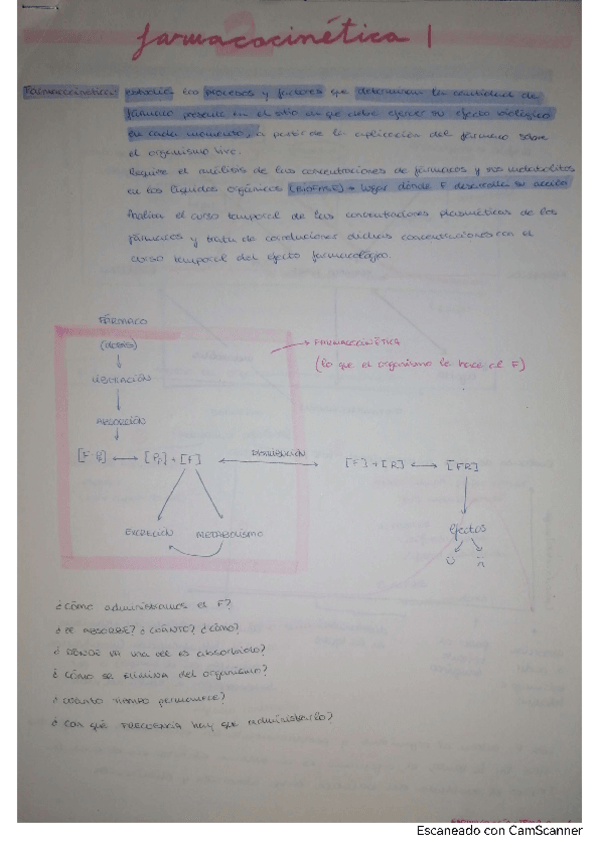 farmacocinética 1
Farmacocinética: estudia los procesos y factores que determinan la cantidad de
fármaco presente en el sitio en que debe ejercer su efecto biológico
en cada momento, a partir de la aplicación del fármaco sobre
el organismo vivo.
Requiere el análisis de las concentraciones de fármacos y sus metabolitos
en los líquidos orgánicos (BIOFASE) → lugar dónde F desarrolla su acción
Analiza el curso temporal de las concentraciones plasmáticas de los
fármacos y trata de correlacionar dichas concentraciones con el
curso temporal del efecto farmacológico.
FÁRMACO
(DOSIS)
→ FARMACOCINÉTICA
(lo que el organismo le hace al F)
LIBERACIÓN
ABSORCIÓN
DISTRIBUCIÓN
[Pr] + [F]
[F] + [R] ↔ [FR]
EXCRECIÓN METABOLISMO
efectos
¿Cómo administramos el F?
¿SE ABSORBE? ¿CUÁNTO? ¿CÓMO?
¿DÓNDE VA una vez es absorbido?
¿Cómo se elimina del organismo?
¿CUÁNTO TIEMPO permanece?
¿Con qué FRECUENCIA hay que administrarlo?
Escaneado con CamScanner